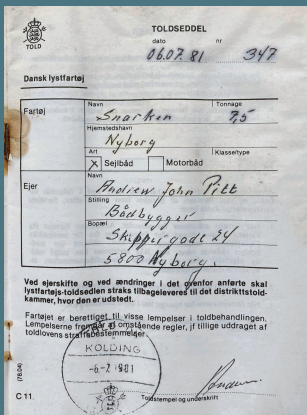 TOLD
TOLDSEDDEL
dato nr
06.07.81 347
Dansk lystfartøj
Fartøj
Navn Tonnage
Snarken 7,5
Hjemstedshavn
Nyborg
Art Klasse/type
X Sejlbåd Motorbåd
Ejer
Navn
Andrew John Pitt
Stilling
Bådbygger
Bopæl
Skippergade 24
5800 Nyborg.
Ved ejerskifte og ved ændringer i det ovenfor anførte skal
lystfartøjs-toldsedlen straks tilbageleveres til det distrikttold-
kammer, hvor den er udstedt.
Fartøjet er berettiget til visse lempelser i toldbehandlingen.
Lempelserne fremgår af omstående regler, jf tillige uddraget af
toldlovens straffebestemmelser.
KOLDING
-6-7 1981
(78.04)
C 11
Toldstempel og underskrift